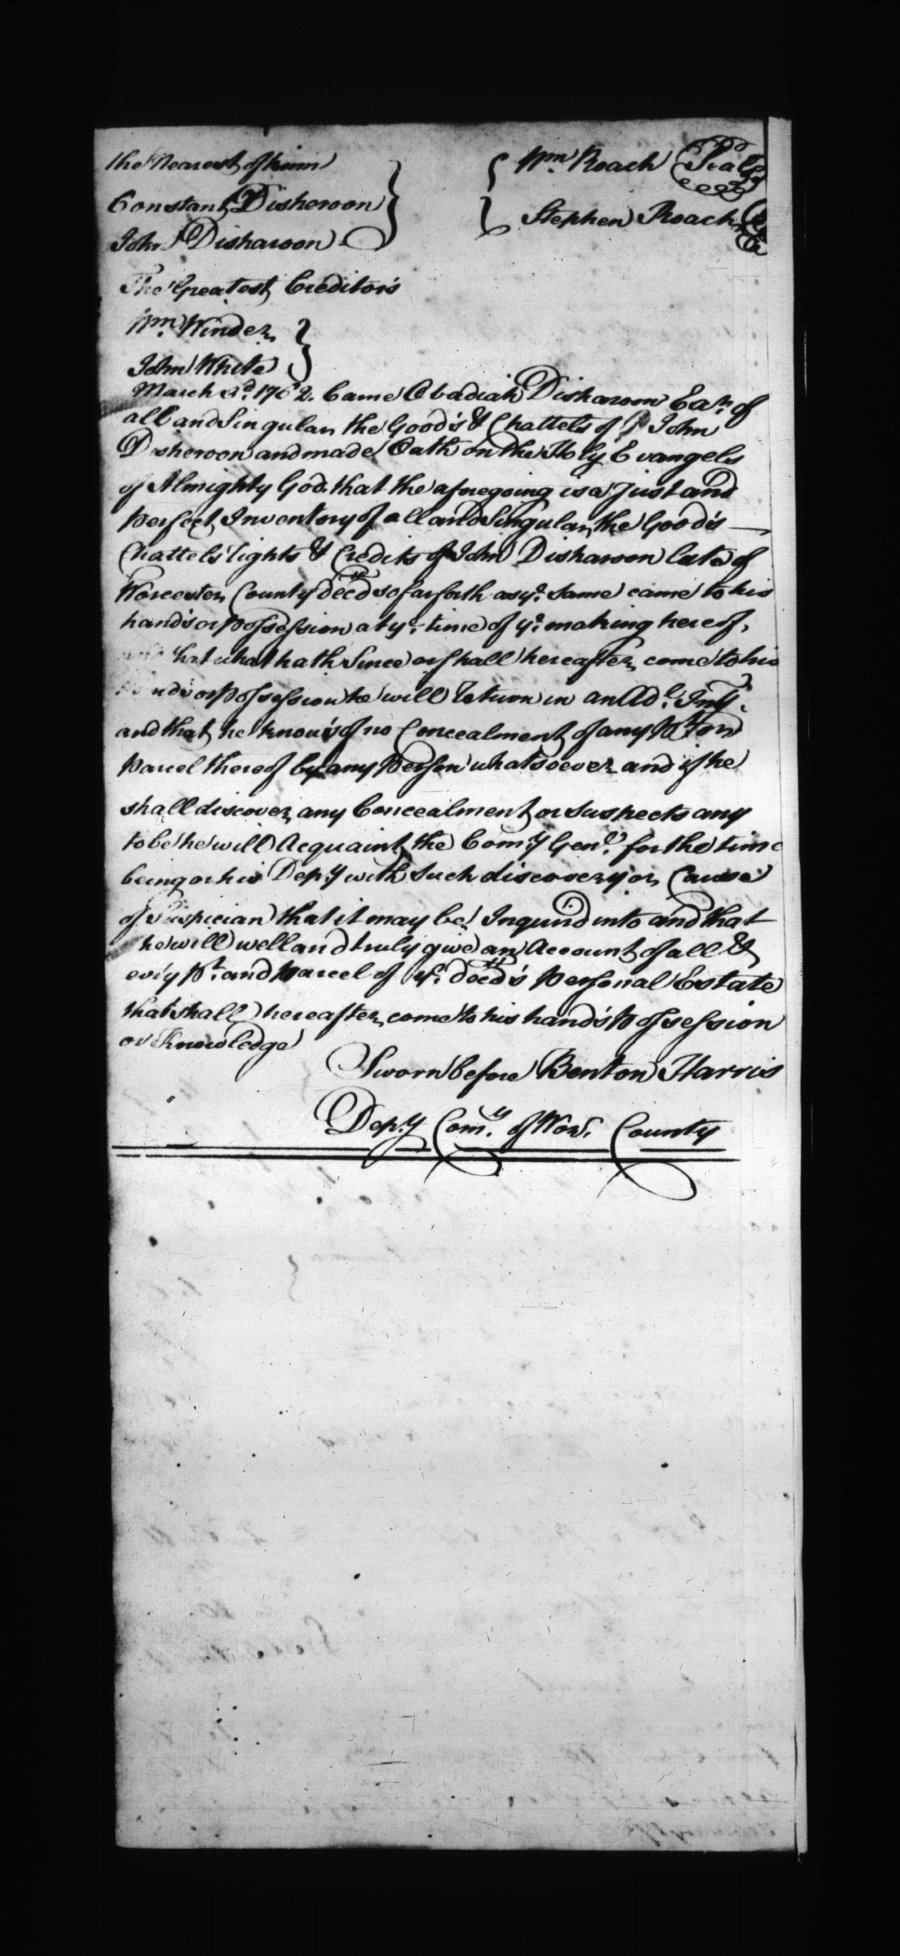 the Nearest of kinn
Wm. Roach Seal
Constant Disheroon
Stephen Roach
John Disharoon
The Greatest Creditor's
Wm. Winder
John White
March 3d. 1762. Came Obadiah Disharoon Exr. of
all and Singular the Good's & Chattels of John
Disheroon and made Oath on the Holy Evangels
of Almighty God. that the aforegoing is a Just and
perfect Inventory of all and Singular the Good's
Chattels rights & Credits of John Disharoon late of
Worcester County decd. so far forth as ye. Same came to his
hand's or possession at ye. time of ye. making hereof,
that what hath Since or shall hereafter come to his
or possession he will return in an Adl. Invy.
and that he know's of no Concealment of any pt. or
parcel thereof by any person whatsoever and if he
shall discover any Concealment or suspects any
to be he will Acquaint the Comy. Genl. for the time
being or his Depy. with Such discovery or Cause
of Suspician that it may be Inquired into and that
he will well and truly give an Account of all &
ev'ry pt. and parcel of ye. decd's personal Estate
that shall hereafter come to his hand's possession
or knowledge
Sworn before Benton Harris
Depy. Comy. of Wor. County